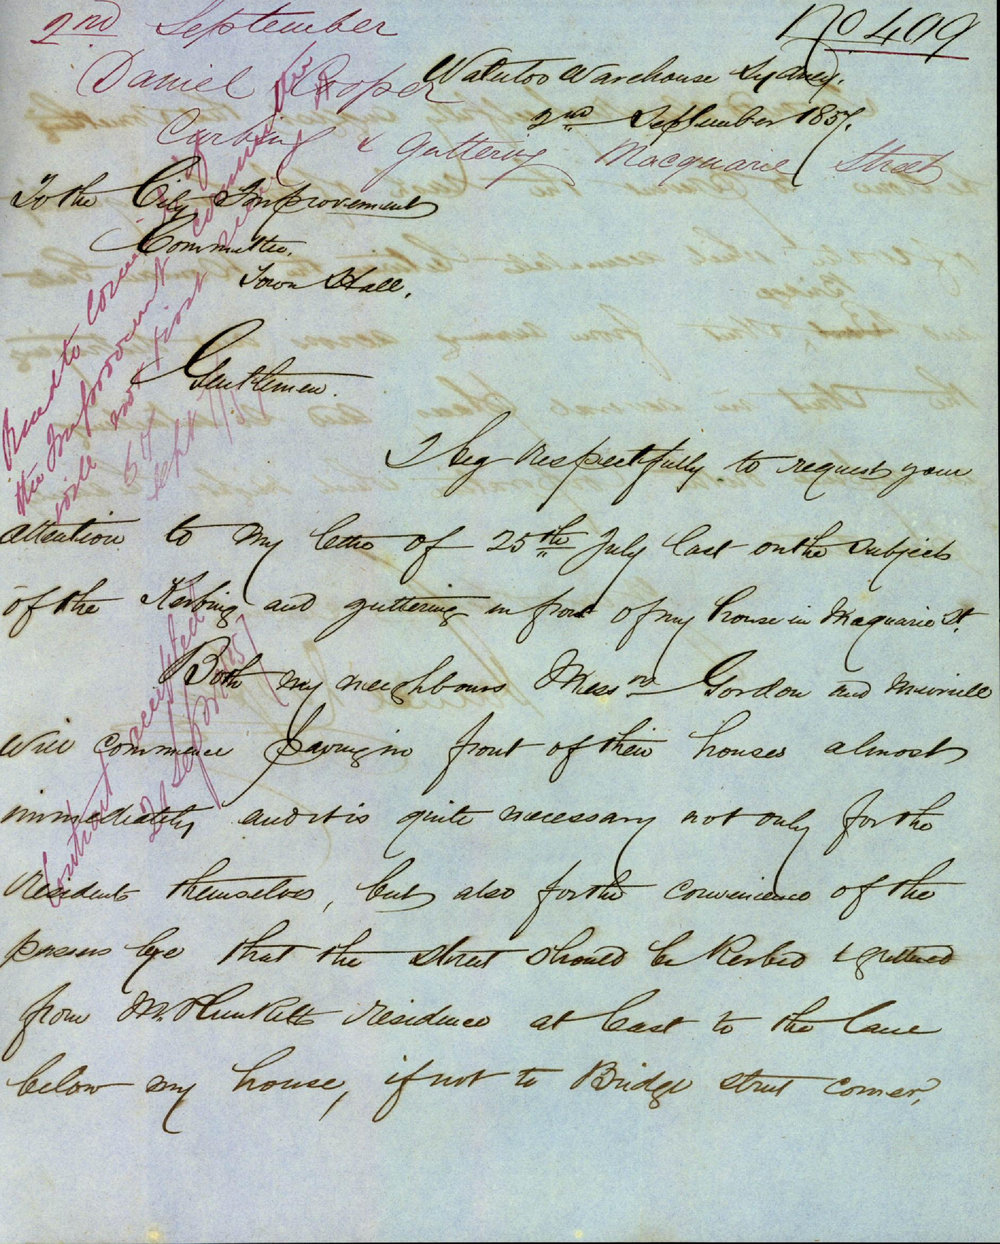 No 409
2nd September
Daniel Cooper
Curbing & Guttering Macquarie Street
Waterloo Warehouse Sydney.
2nd September 1857.
To the City Improvement
Committee.
Town Hall.
Gentlemen.
I beg respectfully to request your
attention to my letter of 25th July last on the subject
of the Kerbing and guttering in front of my house in Macquarie St.
Both my neighbours Messrs Gordon and
will commence paving in front of their houses almost
immediately and it is quite necessary not only for the
residents themselves, but also for the convenience of the
passers bye that the street should be Kerbed & guttered
from Mr Plunketts residence at least to the lane
below my house, if not to Bridge street corner,
the Improvement Committee
will meet first
Sept
Contract accepted
21 Sept 1857